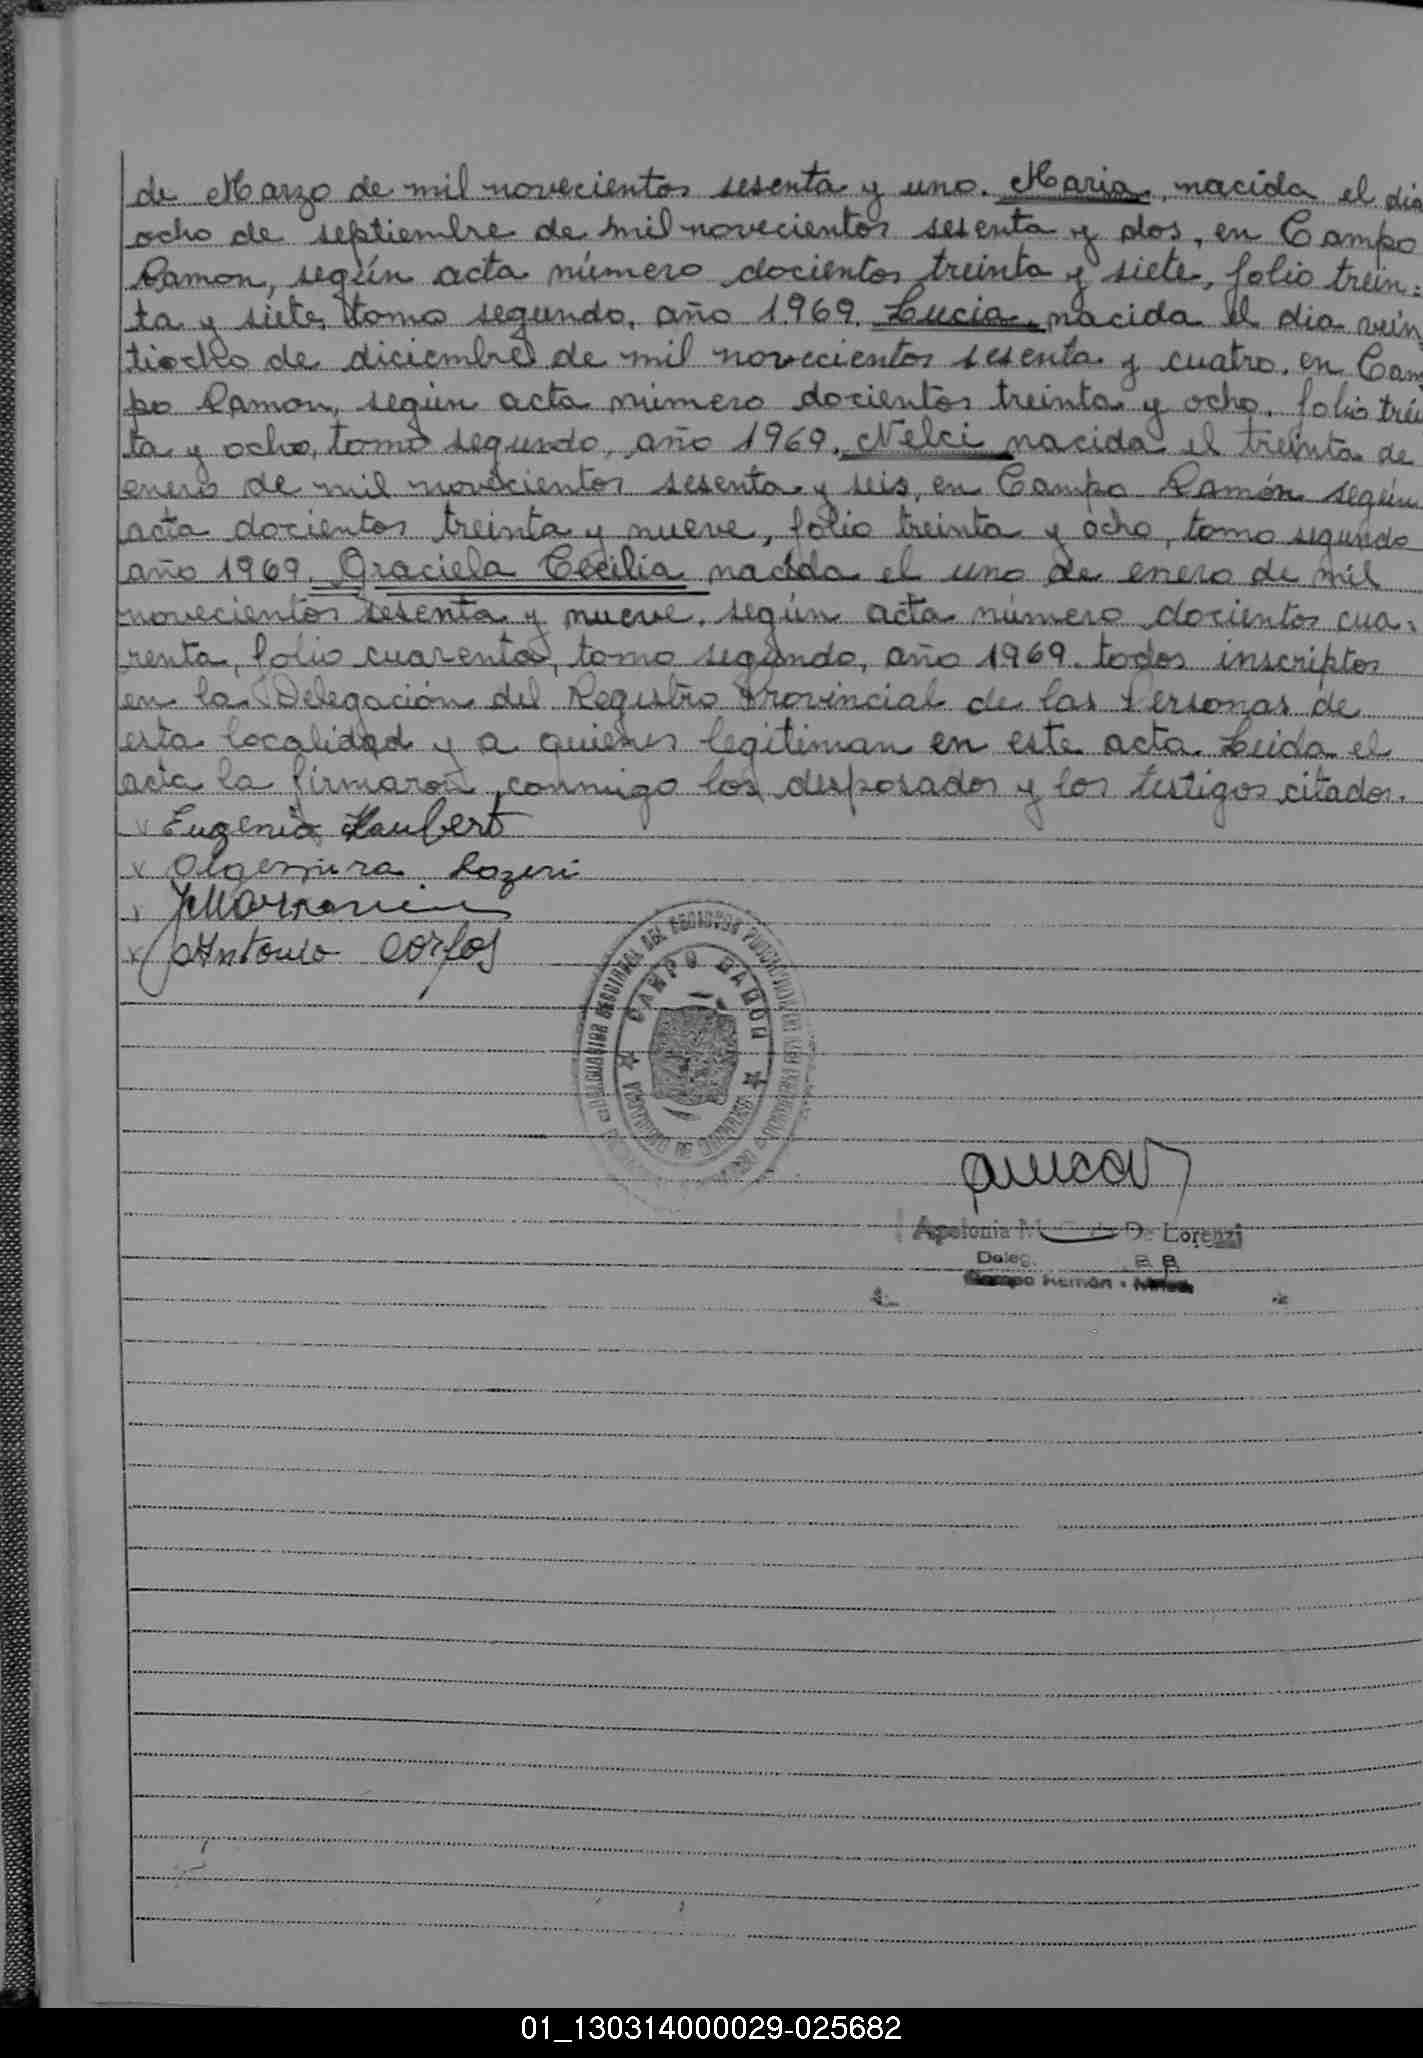 de Marzo de mil novecientos sesenta y uno. Maria, nacida el dia
ocho de septiembre de mil novecientos sesenta y dos, en Campo
Ramon, según acta número docientos treinta y siete, folio trein=
ta y siete, tomo segundo, año 1969. Lucia, nacida el dia vein
tiocho de diciembre de mil novecientos sesenta y cuatro, en Cam
po Ramon, según acta número docientos treinta y ocho, folio trei
ta y ocho, tomo segundo, año 1969. Nelci nacida el treinta de
enero de mil novecientos sesenta y seis, en Campo Ramón según
acta docientos treinta y nueve, folio treinta y ocho, tomo segundo
año 1969. Graciela Cecilia nacida el uno de enero de mil
novecientos sesenta y nueve, según acta número docientos cua-
renta, folio cuarenta, tomo segundo, año 1969. todos inscriptos
en la Delegación del Registro Provincial de las Personas de
esta localidad y a quienes legitiman en este acta. Leida el
acta la firmaron conmigo los desposados y los testigos citados.
x Eugenio Haubert
x
x
x Antonio
CAMPO RAMON
Apolonia M. De Lorenzi
Deleg.
Campo Ramón -
01_130314000029-025682